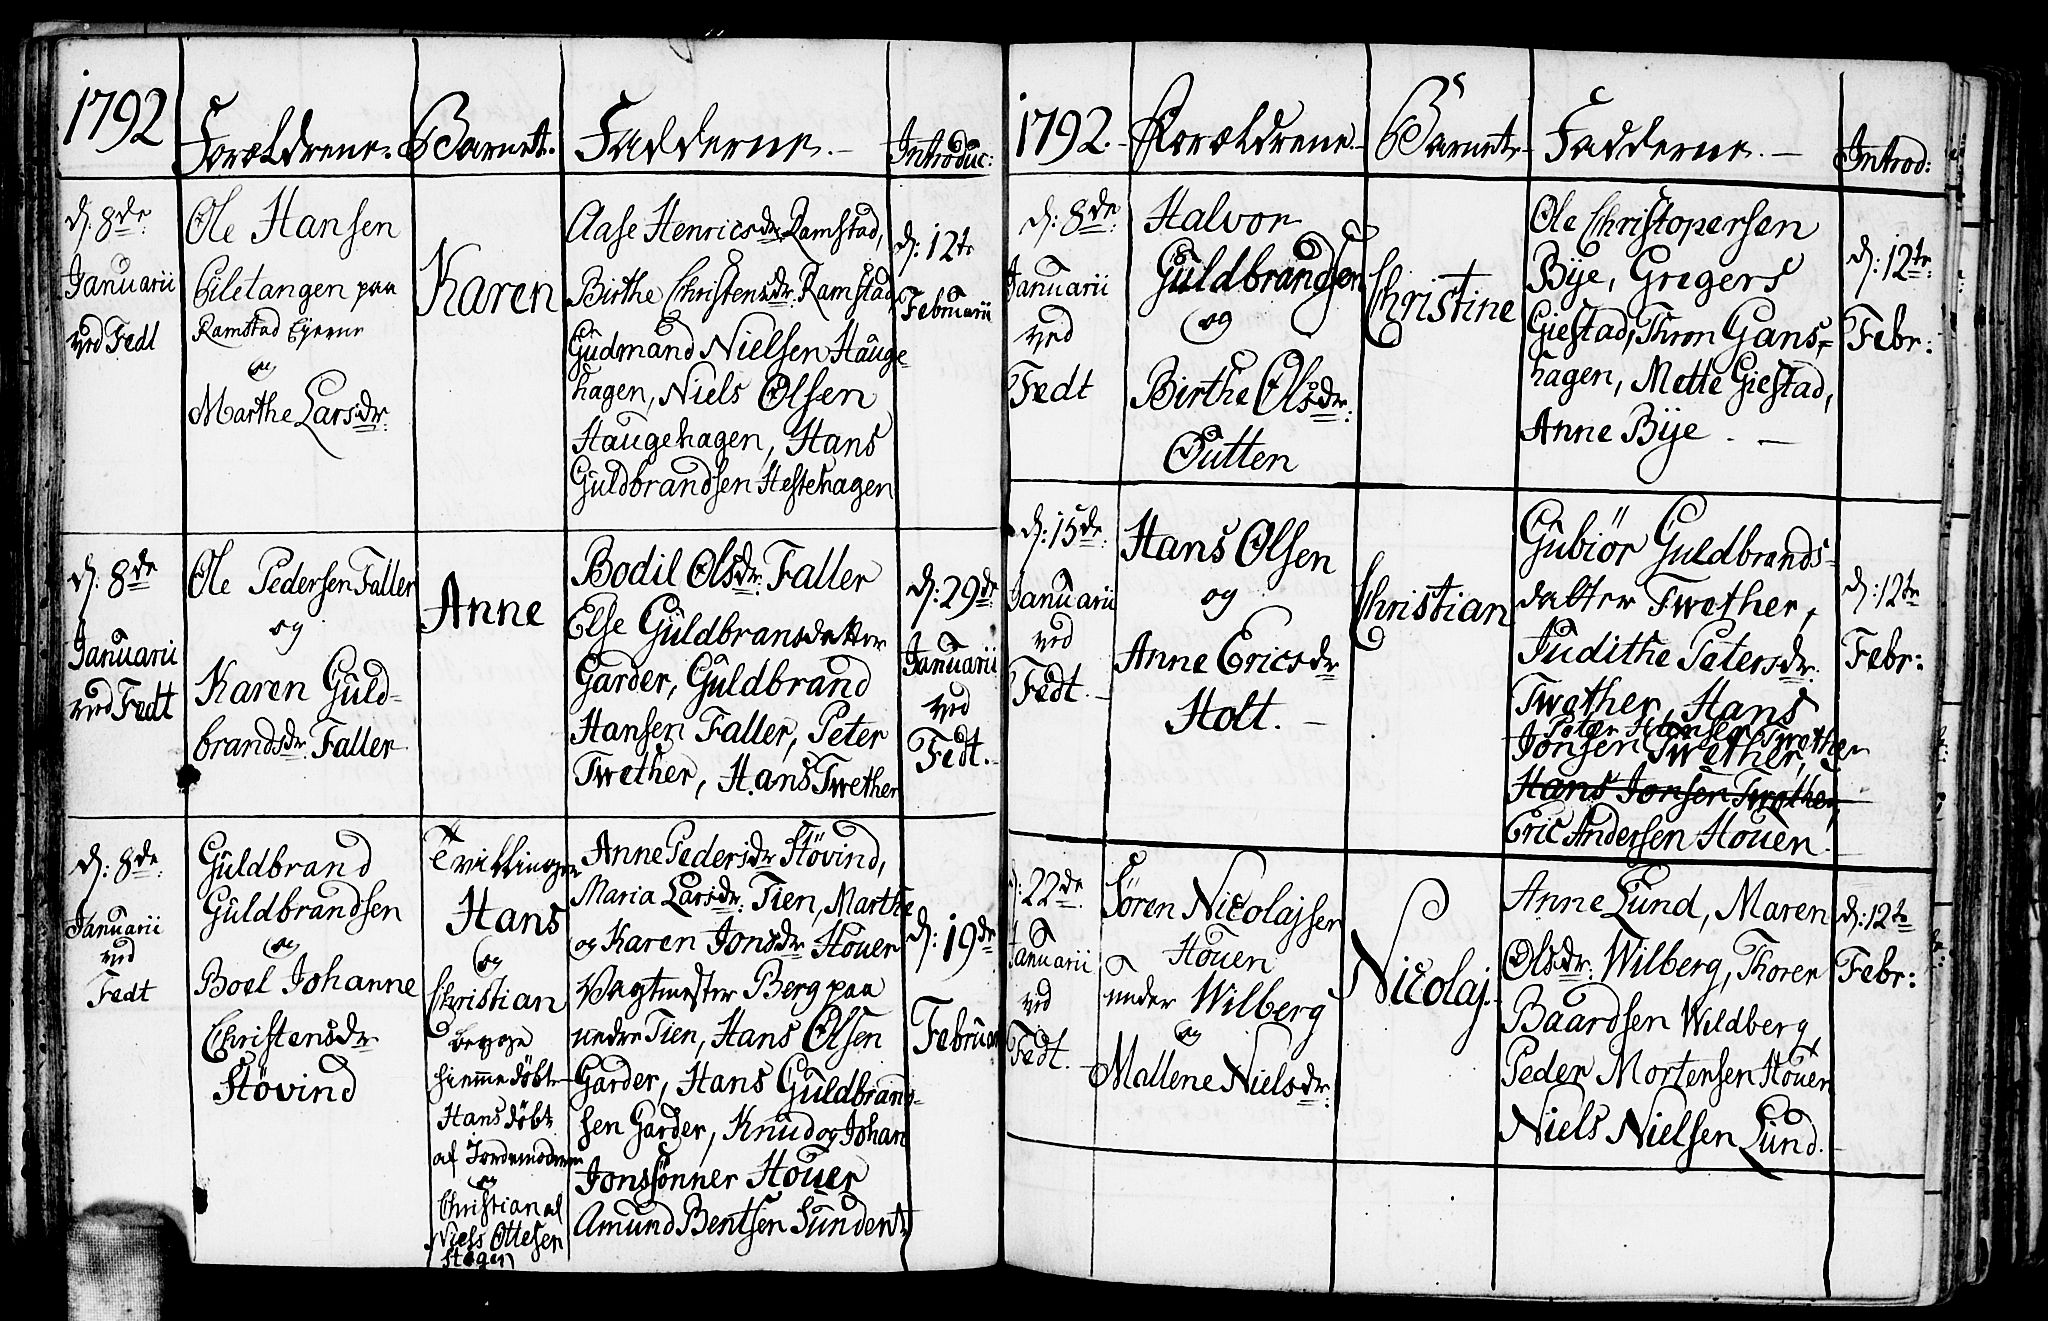 1792
Forældrene.
Barnet.
Fadderne.
Introduc:
d: 8de
Januarii
ved Fedt
Ole Hansen
Eiletangen paa
Ramstad Eyerne
og
Marthe Larsdr.
Karen
Aase Henricsdr. Ramstad,
Birthe Christensdr. Ramstad,
Gudmand Nielsen Hauge-
hagen, Niels Olsen
Haugehagen, Hans
Guldbrandsen Hestehagen
d: 12te
Februarii
d: 8de
Januarii
ved Fedt
Ole Pedersen Faller
og
Karen Guld-
brandsdr. Faller
Anne
Bodil Olsdr. Faller
Else Guldbransdatter
Garder, Guldbrand
Hansen Faller, Peter
Twether, Hans Twether
d: 29de
Januarii
ved
Fedt.
d: 8de
Januarii
ved
Fedt
Guldbrand
Guldbrandsen
og
Boel Johanne
Christensdr
Stövind
Tvillinger
Hans
og
Christian
begge
hiemmedøbt
Hans døbt
af Jordemoderen
og
Christian af
Niels Ottesen
Stegen
Anne Pedersdr Stövind,
Maria Larsdr: Tien, Marthe
og Karen Jonsdr Houer
Vagtmester Berg paa
nedre Tien, Hans Olsen
Garder, Hans Guldbrand-
sen Garder, Knud og Johan
Jonssønner Houer
Amund Bentsen Sundent
d: 19de
Februar
1792.
Forældrene.
Barnet
Fadderne.
Introd:
d: 8de
Januarii
ved
Fedt
Halvor
Guldbrandsen
og
Birthe Olsdr.
Outten
Christine
Ole Christopersen
Bye, Gregers
Giestad, Thron Gans-
hagen, Mette Giestad,
Anne Bye.
d: 12te
Febr:
d: 15de
Januarii
ved
Fedt.
Hans Olsen
og
Anne Ericsdr
Holt.
Christian
Gubiör Guldbrands-
datter Twether,
Judithe Petersdr.
Twether, Hans
Peter Hansen Twether
Jonsen Twether,
Hans Jonsen Twether,
Eric Andersen Houen.
d: 12te
Febr:
d: 22de
Januarii
ved
Fedt.
Søren Nicolajsen
Houen
under Wilberg
og
Mallene Nielsdr.
Nicolaj.
Anne Lund, Maren
Olsdr. Wilberg, Thorer
Baardsen Wildberg,
Peder Mortensen Houen
Niels Nielsen Lund.
d: 12te
Febr: